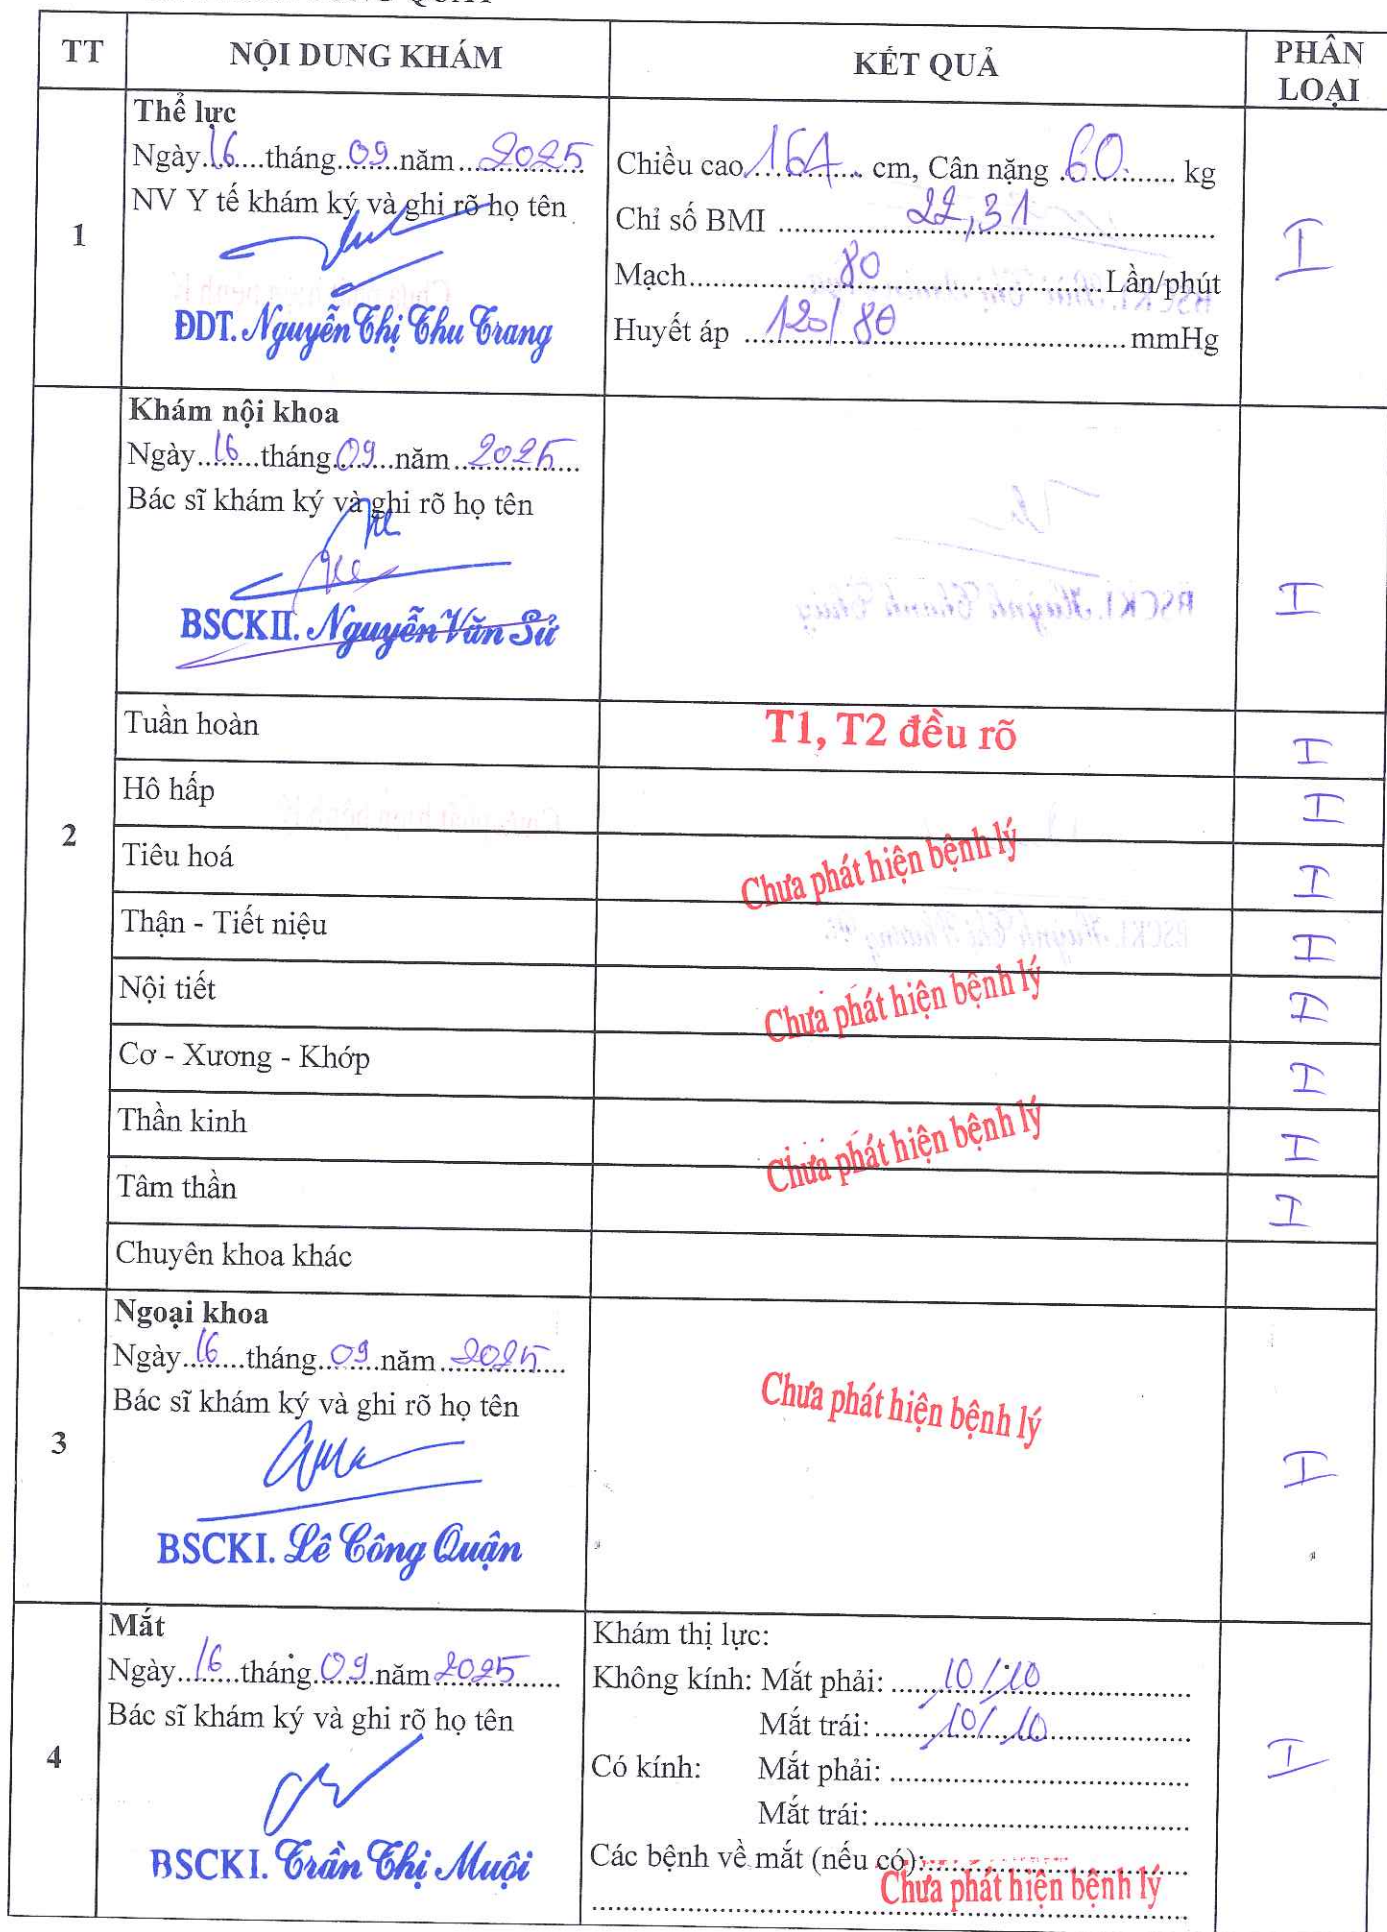 TT NỘI DUNG KHÁM KẾT QUẢ PHÂN LOẠI
1
Thể lực
Ngày 16 tháng 09 năm 2025
NV Y tế khám ký và ghi rõ họ tên
ĐDT. Nguyễn Thị Thu Trang
Chiều cao 164 cm, Cân nặng 60 kg
Chỉ số BMI 22,31
Mạch 80 Lần/phút
Huyết áp 120/80 mmHg
I
2
Khám nội khoa
Ngày 16 tháng 09 năm 2025
Bác sĩ khám ký và ghi rõ họ tên
BSCKII. Nguyễn Văn Sử
I
Tuần hoàn T1, T2 đều rõ I
Hô hấp I
Tiêu hoá Chưa phát hiện bệnh lý I
Thận - Tiết niệu I
Nội tiết Chưa phát hiện bệnh lý I
Cơ - Xương - Khớp I
Thần kinh Chưa phát hiện bệnh lý I
Tâm thần I
Chuyên khoa khác
3
Ngoại khoa
Ngày 16 tháng 09 năm 2025
Bác sĩ khám ký và ghi rõ họ tên
BSCKI. Lê Công Quận
Chưa phát hiện bệnh lý
I
4
Mắt
Ngày 16 tháng 09 năm 2025
Bác sĩ khám ký và ghi rõ họ tên
BSCKI. Trần Thị Muội
Khám thị lực:
Không kính: Mắt phải: 10/10
Mắt trái: 10/10
Có kính: Mắt phải:
Mắt trái:
Các bệnh về mắt (nếu có):
Chưa phát hiện bệnh lý
I